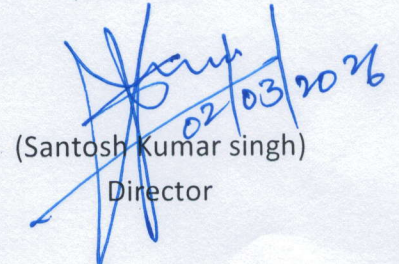 02/03/2026
(Santosh Kumar singh)
Director